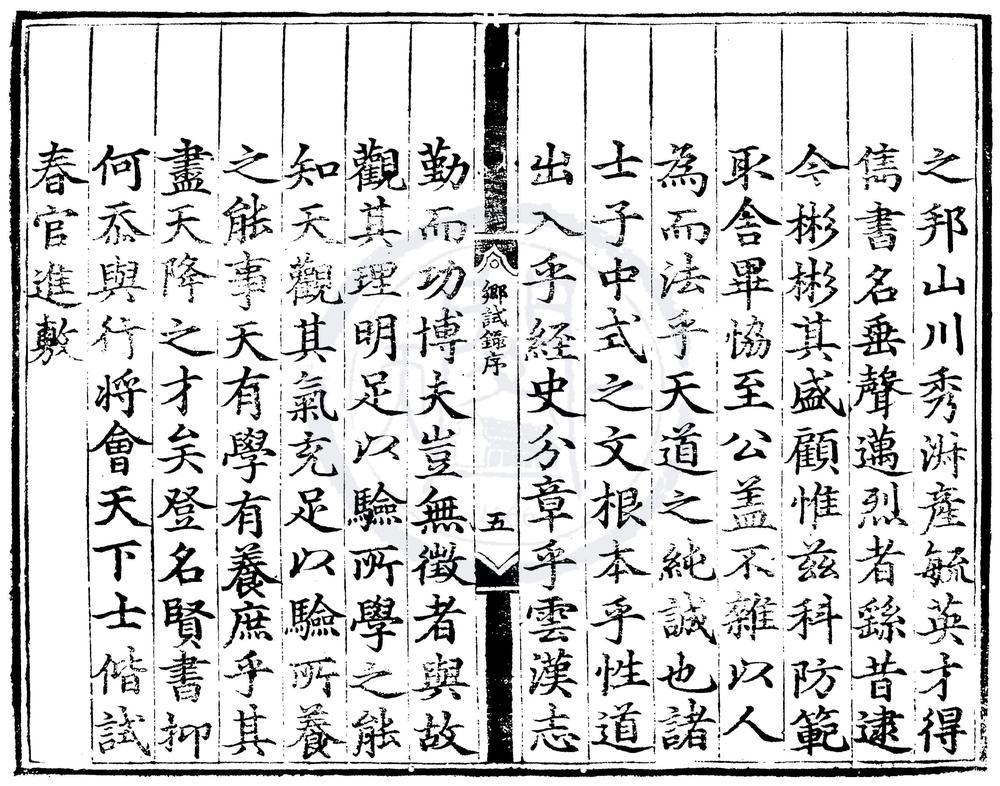 之邦山川秀淋產毓英才得
雋書名垂聲邁烈者繇昔逮
今彬彬其盛顧惟茲科防範
取舍畢恊至公盖不雜以人
為而法乎天道之純誠也諸
士子中式之文根本乎性道
出入乎経史分章乎雲漢志
鄉試錄序
五
勤而功博夫豈無徵者與故
觀其理明足以驗所學之能
知天觀其氣充足以驗所養
之能事天有學有養庶乎其
盡天降之才矣登名賢書抑
何忝與行將會天下士偕試
春官進敷